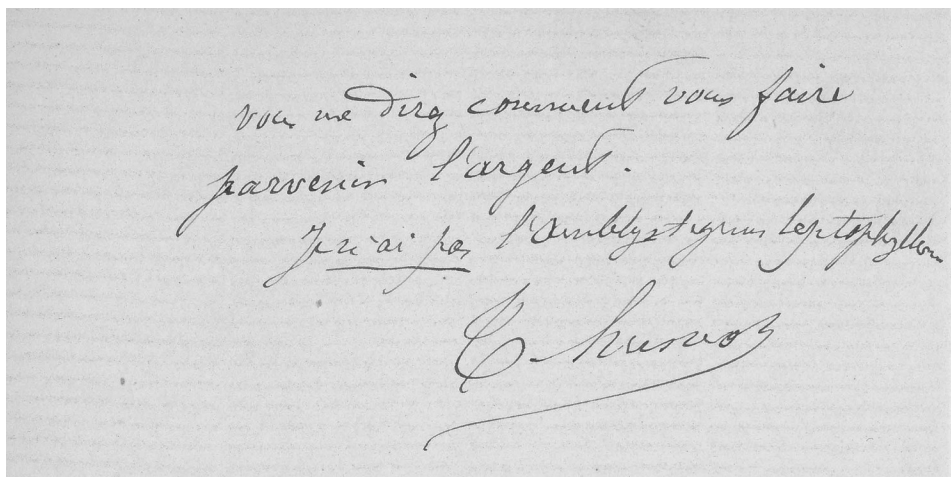 vous me direz comment vous faire
parvenir l'argent.
Je n'ai pas l'Amblystegium leptophyllum
T. Husnot